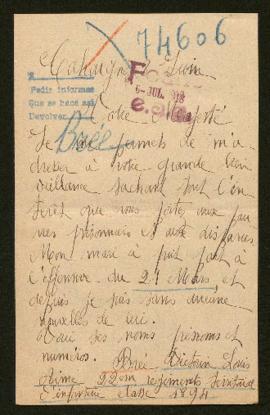 74606
Juin
Pedir informes
Que se hace así
Devolver
6- JUL. 1918
Votre Majesté
Brée
Je me permets de m'a
dresser à votre grande bien
veillance sachant tout l'in
térêt que vous portez aux pau
vres prisonniers et aux disparus
Mon mari a fait parti à
l'offensive du 27 Mars et
depuis je suis sans aucune
nouvelles de lui.
Voici ses noms prénoms et
numéros. Brée Victorin Louis
Aimé 22em régiments territorial
d'infanterie classe 1894